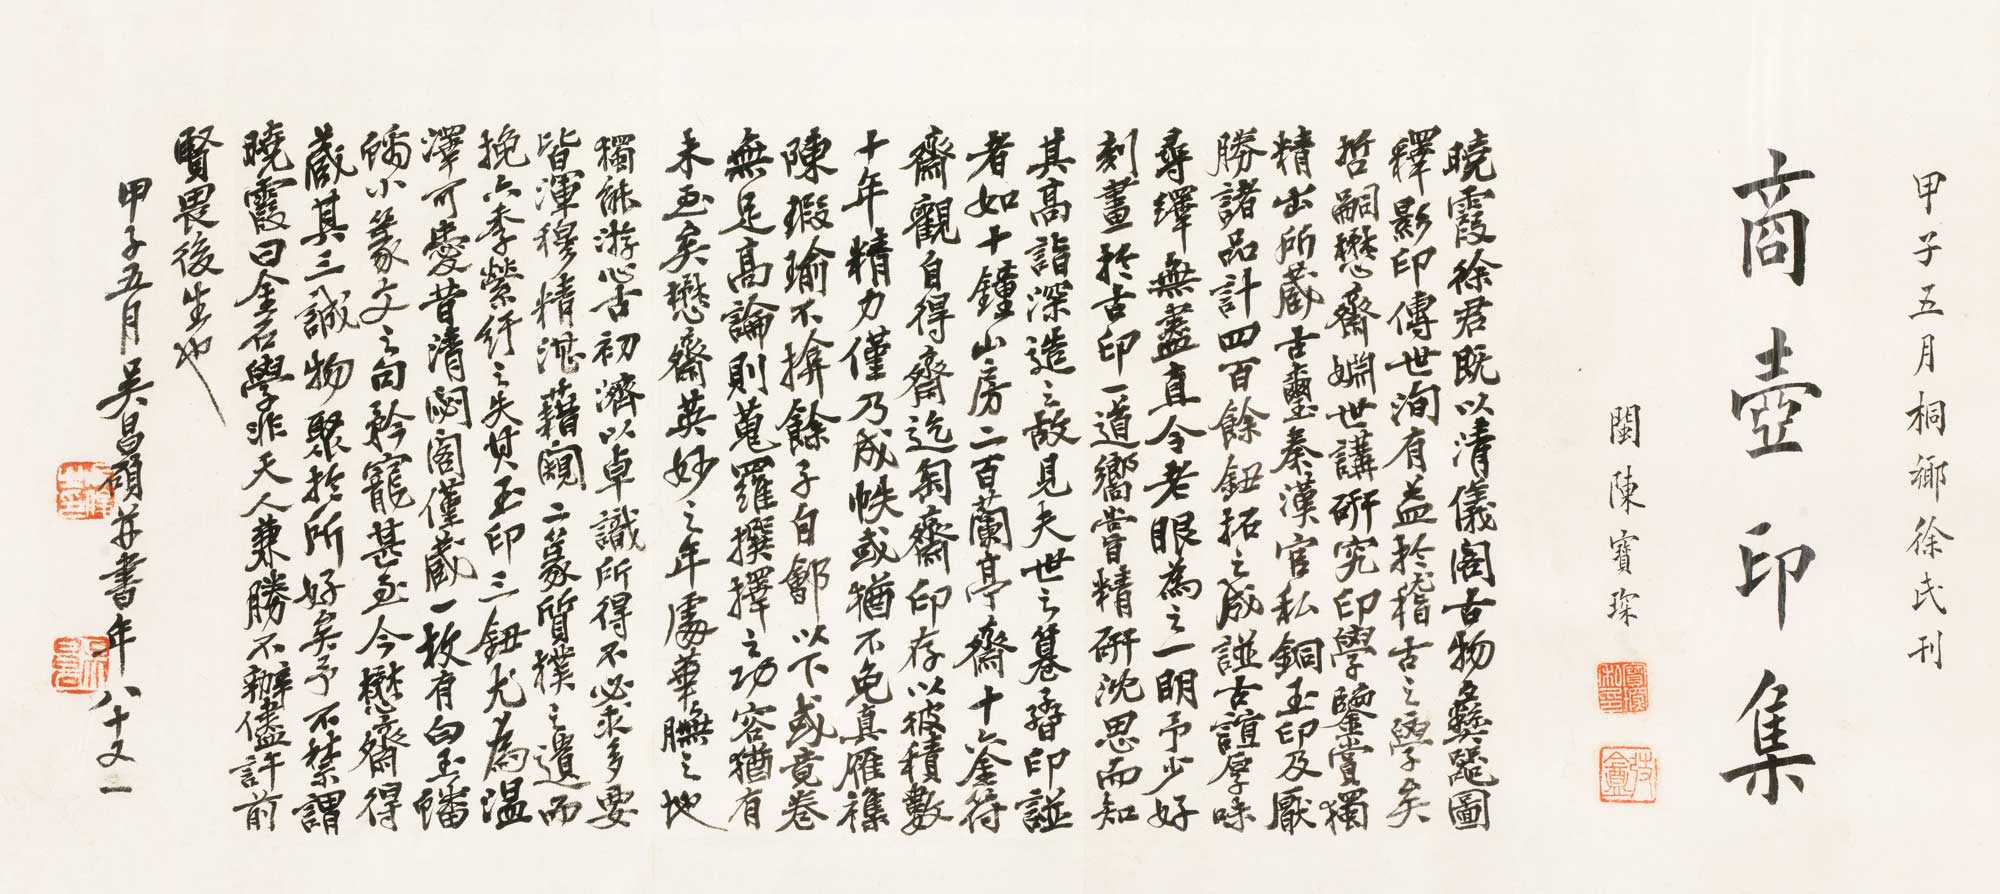 甲子五月桐鄉徐氏刊
商壺印集
閩陳寶琛
曉霞徐君既以清儀閣古物彝器圖
釋影印傳世洵有益於稽古之學矣
哲嗣懋齋嫻世講研究印學鑒賞獨
精出所藏古鉨秦漢官私銅玉印及厭
勝諸品計四百餘鈕拓之成譜古誼厚味
尋繹無盡直令老眼為之一明予少好
刻畫於古印一道嚮嘗精研沈思而知
其高詣深造之故見夫世之篹譜印譜
者如十鐘山房二百蘭亭齋十六金符
齋觀自得齋迄匋齋印存以彼積數
十年精力僅乃成帙或猶不免真雁襍
陳瑕瑜不揜餘子自鄶以下或竟卷
無足高論則蒐羅撰擇之功容猶有
未至矣懋齋英妙之年處華膴之地
獨能游心古初濟以卓識所得不必求多要
皆渾穆精湛藉闚二篆質樸之遺而
挽六季縈紆之失其玉印三鈕尤為溫
澤可愛昔清閟閣僅藏一枚有白玉蟠
螭小篆文之句矜寵甚至今懋齋得
藏其三誠物聚於所好矣予不禁謂
曉霞曰金石學非天人兼勝不辦儘許前
賢畏後生也
甲子五月吳昌碩并書年八十又一